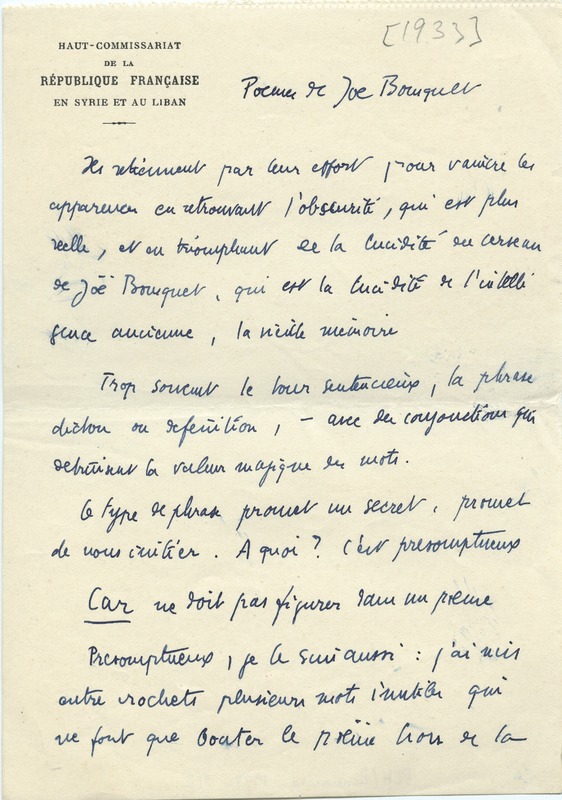 [1933]
HAUT-COMMISSARIAT
DE LA
RÉPUBLIQUE FRANÇAISE
EN SYRIE ET AU LIBAN
Poemes de Joë Bousquet
Ils retiennent par leur effort pour vaincre les
apparences en retrouvant l'obscurité, qui est plus
réelle, et en triomphant de la lucidité du cerveau
de Joë Bousquet, qui est la lucidité de l'intelli
gence ancienne, la vieille mémoire
Trop souvent le tour sentencieux, la phrase
dicton ou définition, – avec des conjonctions qui
détruisent la valeur magique des mots.
Ce type de phrase promet un secret, promet
de nous initier. A quoi? C'est présomptueux
Car ne doit pas figurer dans un poème
Présomptueux, je le suis aussi : j'ai mis
entre crochets plusieurs mots inutiles qui
ne font que bouter le poème hors de la